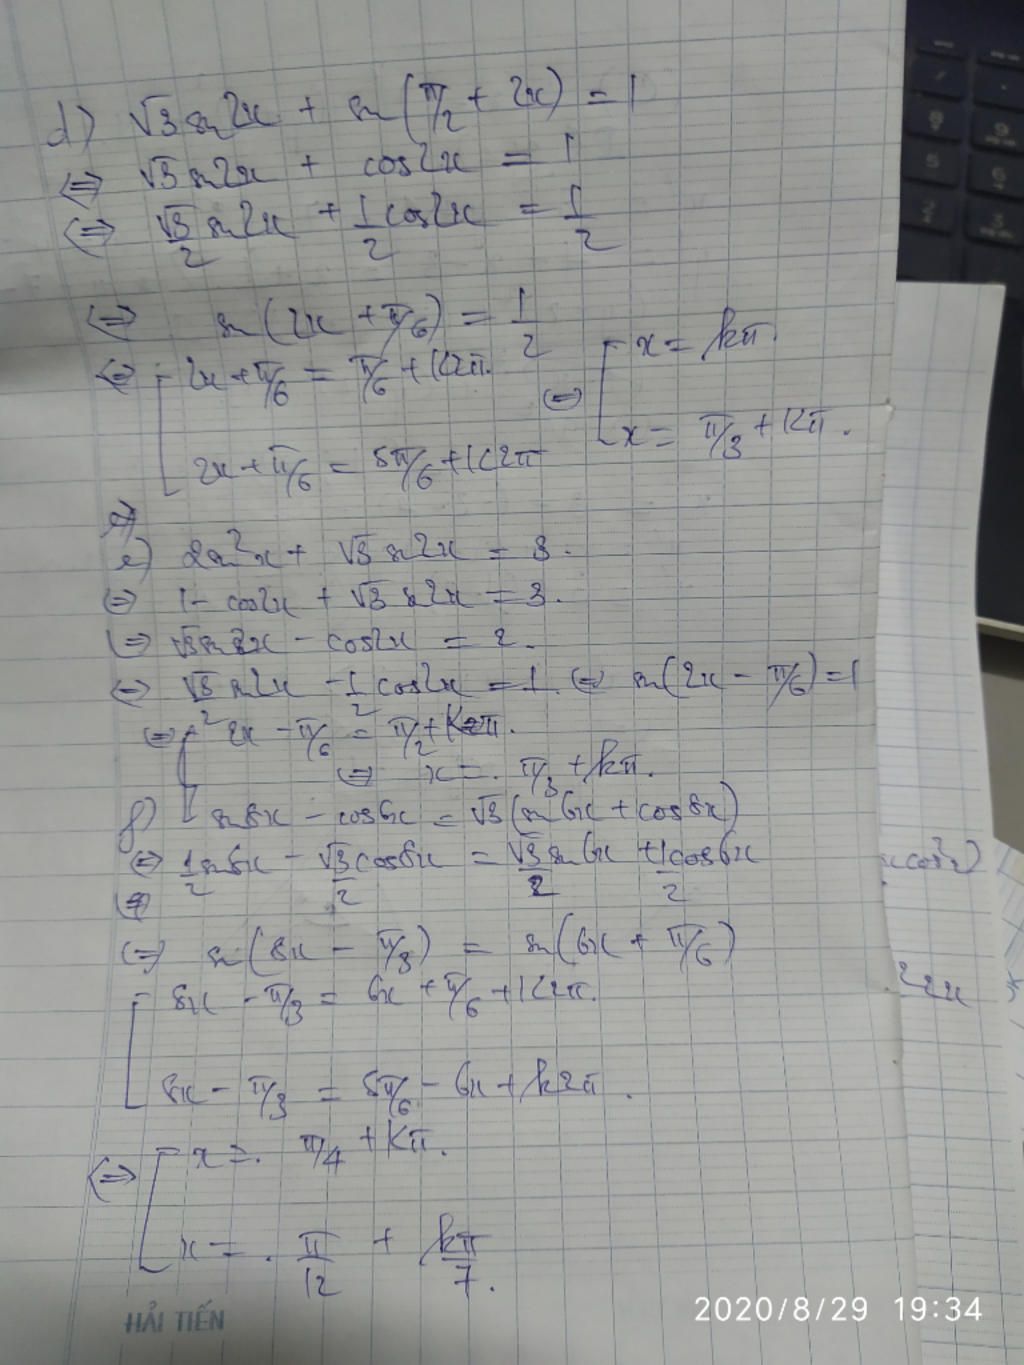 d) √3 sin2x + sin(π/2 + 2x) = 1
⇔ √3 sin2x + cos2x = 1
⇔ √3/2 sin2x + 1/2 cos2x = 1/2
⇔ sin(2x + π/6) = 1/2
⇔ [ 2x + π/6 = π/6 + k2π.
2x + π/6 = 5π/6 + k2π
⇔ [ x = kπ.
x = π/3 + kπ.
e) 2sin²x + √3 sin2x = 3.
⇔ 1 - cos2x + √3 sin2x = 3.
⇔ √3 sin2x - cos2x = 2.
⇔ √3/2 sin2x - 1/2 cos2x = 1. ⇔ sin(2x - π/6) = 1
⇔ 2x - π/6 = π/2 + k2π.
⇔ x = π/3 + kπ.
f) sin8x - cos6x = √3(sin6x + cos8x)
⇔ 1/2 sin8x - √3/2 cos8x = √3/2 sin6x + 1/2 cos6x
⇔ sin(8x - π/3) = sin(6x + π/6)
[ 8x - π/3 = 6x + π/6 + k2π.
8x - π/3 = 5π/6 - 6x + k2π.
⇔ [ x = π/4 + kπ.
x = π/12 + kπ/7.
HẢI TIẾN
2020/8/29 19:34